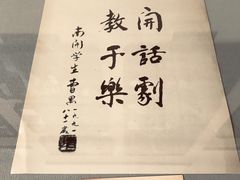 開話劇
教于樂
南開学生曹禺一九九一
八十一歲